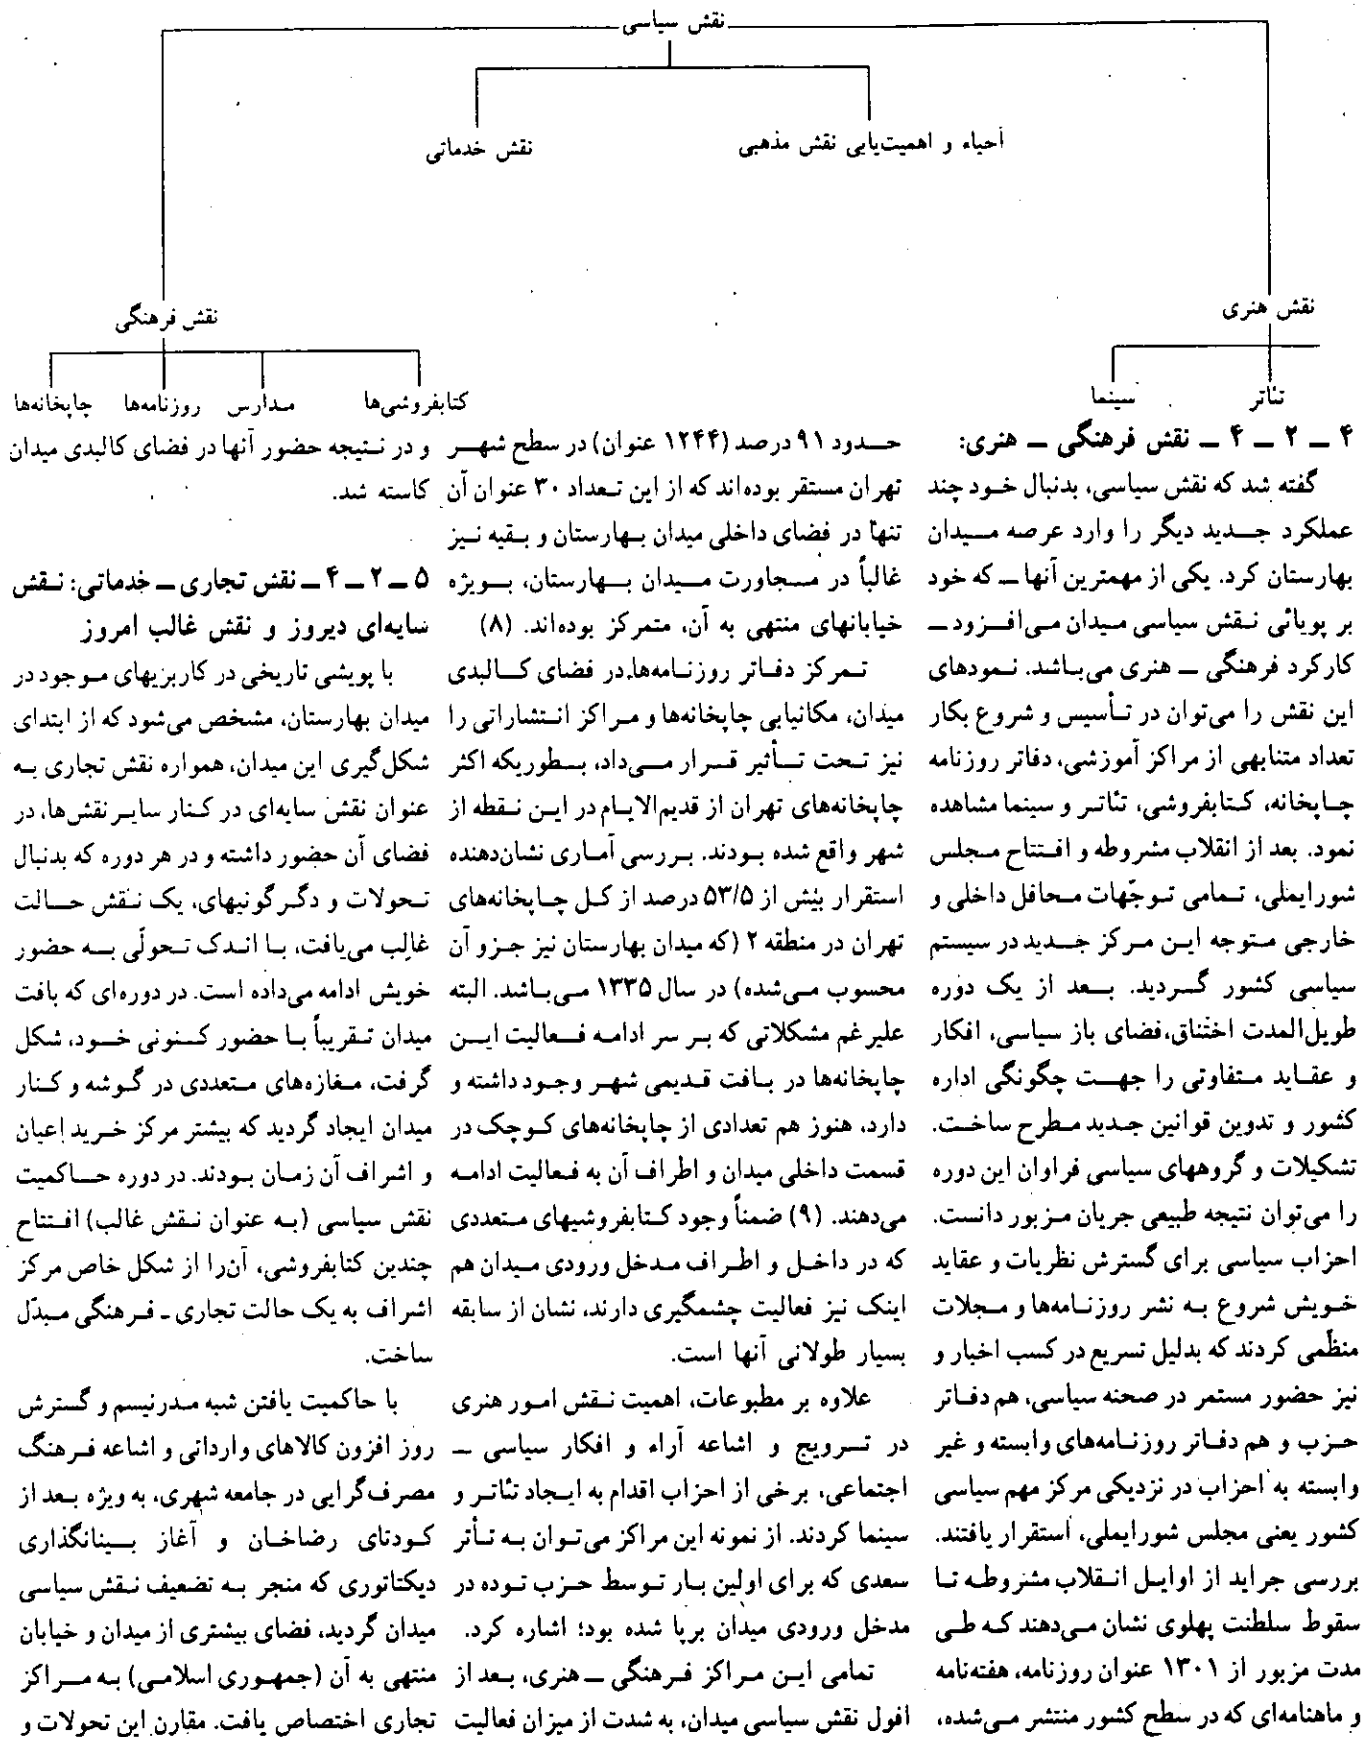 نقش سیاسی
احیاء و اهمیت‌یابی نقش مذهبی
نقش خدماتی
نقش هنری
نقش فرهنگی
تئاتر
سینما
کتابفروشی‌ها
مدارس
روزنامه‌ها
چاپخانه‌ها
۴ ــ ۲ ــ ۴ ــ نقش فرهنگی ــ هنری:
گفته شد که نقش سیاسی، بدنبال خود چند
عملکرد جدید دیگر را وارد عرصه میدان
بهارستان کرد. یکی از مهمترین آنها ــ که خود
بر پویائی نقش سیاسی میدان می‌افزود ــ
کارکرد فرهنگی ــ هنری می‌باشد. نمودهای
این نقش را می‌توان در تأسیس و شروع بکار
تعداد متنابهی از مراکز آموزشی، دفاتر روزنامه
چاپخانه، کتابفروشی، تئاتر و سینما مشاهده
نمود. بعد از انقلاب مشروطه و افتتاح مجلس
شورایملی، تمامی توجّهات محافل داخلی و
خارجی متوجه این مرکز جدید در سیستم
سیاسی کشور گردید. بعد از یک دوره
طویل‌المدت اختناق،فضای باز سیاسی، افکار
و عقاید متفاوتی را جهت چگونگی اداره
کشور و تدوین قوانین جدید مطرح ساخت.
تشکیلات و گروههای سیاسی فراوان این دوره
را می‌توان نتیجه طبیعی جریان مزبور دانست.
احزاب سیاسی برای گسترش نظریات و عقاید
خویش شروع به نشر روزنامه‌ها و مجلات
منظّمی کردند که بدلیل تسریع در کسب اخبار و
نیز حضور مستمر در صحنه سیاسی، هم دفاتر
حزب و هم دفاتر روزنامه‌های وابسته و غیر
وابسته به احزاب در نزدیکی مرکز مهم سیاسی
کشور یعنی مجلس شورایملی، استقرار یافتند.
بررسی جراید از اوایل انقلاب مشروطه تا
سقوط سلطنت پهلوی نشان می‌دهند که طی
مدت مزبور از ۱۳۰۱ عنوان روزنامه، هفته‌نامه
و ماهنامه‌ای که در سطح کشور منتشر می‌شده،
حدود ۹۱ درصد (۱۲۴۴ عنوان) در سطح شهر
تهران مستقر بوده‌اند که از این تعداد ۳۰ عنوان آن
تنها در فضای داخلی میدان بهارستان و بقیه نیز
غالباً در مجاورت میدان بهارستان، بویژه
خیابانهای منتهی به آن، متمرکز بوده‌اند. (۸)
تمرکز دفاتر روزنامه‌ها،در فضای کالبدی
میدان، مکانیابی چاپخانه‌ها و مراکز انتشاراتی را
نیز تحت تأثیر قرار می‌داد، بطوریکه اکثر
چاپخانه‌های تهران از قدیم‌الایام در این نقطه از
شهر واقع شده بودند. بررسی آماری نشان‌دهنده
استقرار بیش از ۵۳/۵ درصد از کل چاپخانه‌های
تهران در منطقه ۲ (که میدان بهارستان نیز جزو آن
محسوب می‌شده) در سال ۱۳۳۵ می‌باشد. البته
علیرغم مشکلاتی که بر سر ادامه فعالیت این
چاپخانه‌ها در بافت قدیمی شهر وجود داشته و
دارد، هنوز هم تعدادی از چاپخانه‌های کوچک در
قسمت داخلی میدان و اطراف آن به فعالیت ادامه
می‌دهند. (۹) ضمناً وجود کتابفروشیهای متعددی
که در داخل و اطراف مدخل ورودی میدان هم
اینک نیز فعالیت چشمگیری دارند، نشان از سابقه
بسیار طولانی آنها است.
علاوه بر مطبوعات، اهمیت نقش امور هنری
در ترویج و اشاعه آراء و افکار سیاسی ــ
اجتماعی، برخی از احزاب اقدام به ایجاد تئاتر و
سینما کردند. از نمونه این مراکز می‌توان به تأتر
سعدی که برای اولین بار توسط حزب توده در
مدخل ورودی میدان برپا شده بود؛ اشاره کرد.
تمامی این مراکز فرهنگی ــ هنری، بعد از
افول نقش سیاسی میدان، به شدت از میزان فعالیت
و در نتیجه حضور آنها در فضای کالبدی میدان
کاسته شد.
۵ ــ ۲ ــ ۴ ــ نقش تجاری ــ خدماتی: نقش
سایه‌ای دیروز و نقش غالب امروز
با پویشی تاریخی در کاربریهای موجود در
میدان بهارستان، مشخص می‌شود که از ابتدای
شکل‌گیری این میدان، همواره نقش تجاری به
عنوان نقش سایه‌ای در کنار سایر نقش‌ها، در
فضای آن حضور داشته و در هر دوره که بدنبال
تحولات و دگرگونیهای، یک نقش حالت
غالب می‌یافت، با اندک تحولّی به حضور
خویش ادامه می‌داده است. در دوره‌ای که بافت
میدان تقریباً با حضور کنونی خود، شکل
گرفت، مغازه‌های متعددی در گوشه و کنار
میدان ایجاد گردید که بیشتر مرکز خرید اعیان
و اشراف آن زمان بودند. در دوره حاکمیت
نقش سیاسی (به عنوان نقش غالب) افتتاح
چندین کتابفروشی، آن‌را از شکل خاص مرکز
اشراف به یک حالت تجاری ـ فرهنگی مبدّل
ساخت.
با حاکمیت یافتن شبه مدرنیسم و گسترش
روز افزون کالاهای وارداتی و اشاعه فرهنگ
مصرف‌گرایی در جامعه شهری، به ویژه بعد از
کودتای رضاخان و آغاز بینانگذاری
دیکتاتوری که منجر به تضعیف نقش سیاسی
میدان گردید، فضای بیشتری از میدان و خیابان
منتهی به آن (جمهوری اسلامی) به مراکز
تجاری اختصاص یافت. مقارن این تحولات و